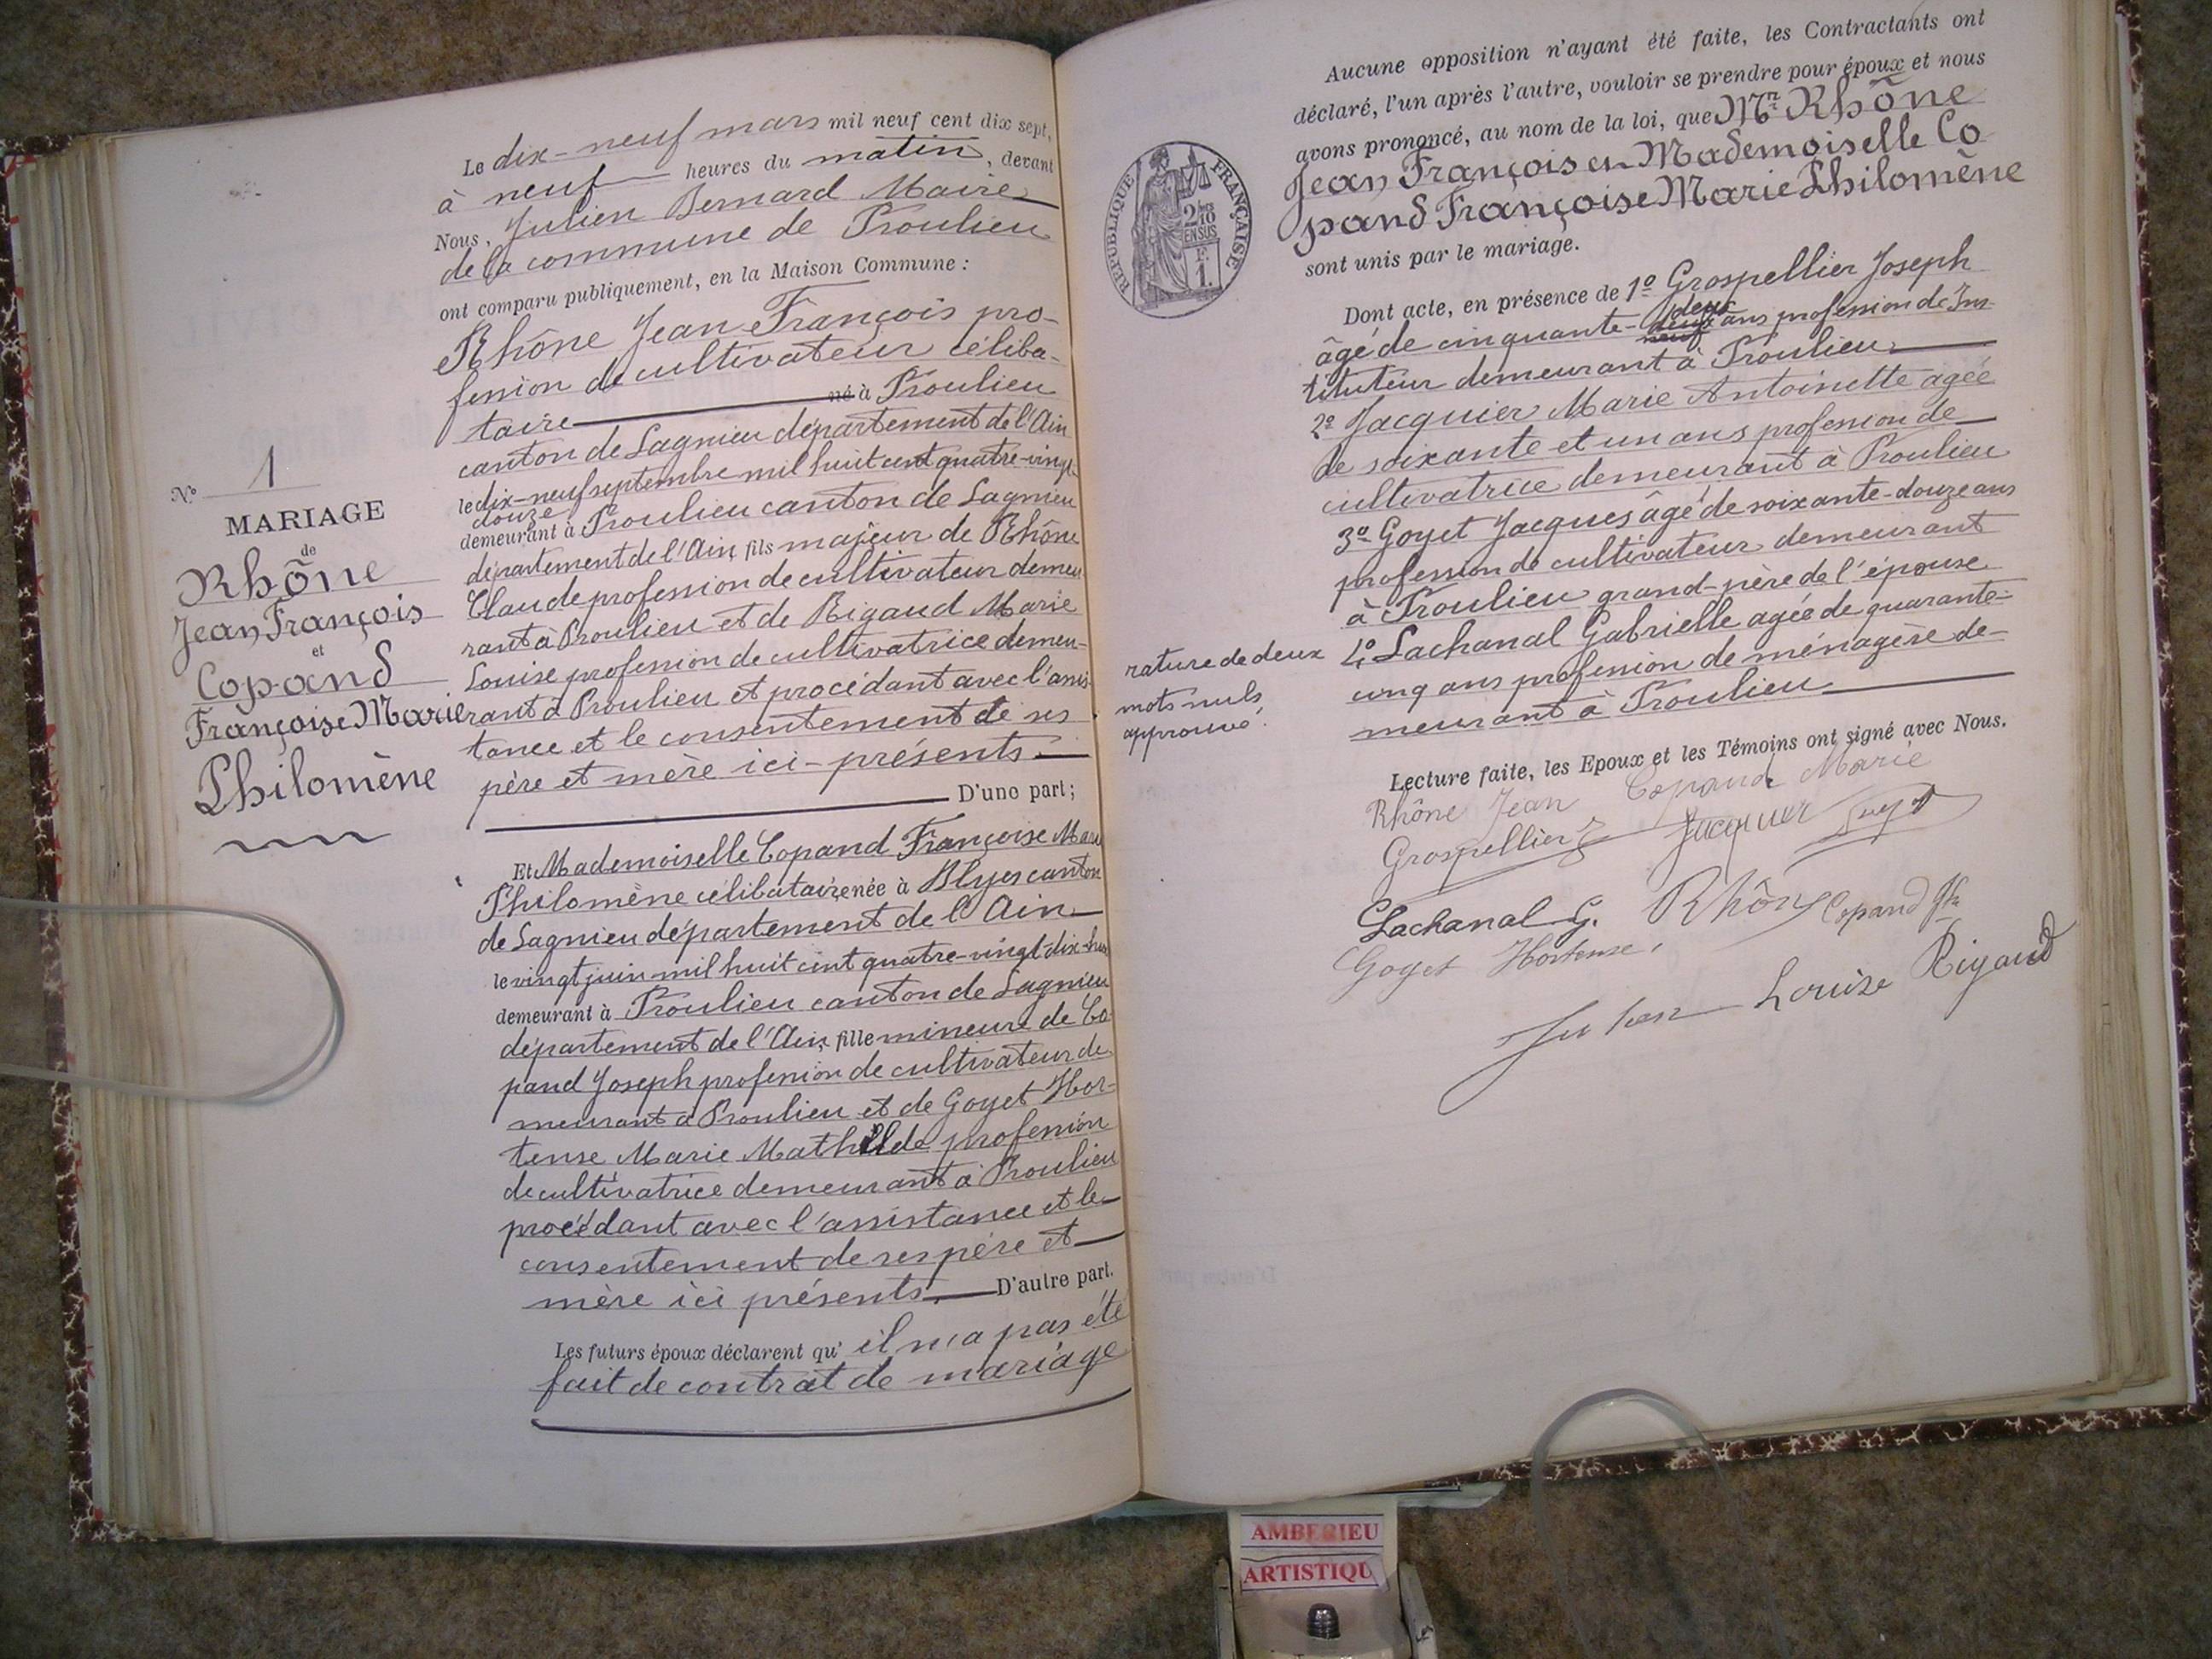 Le dix-neuf mars mil neuf cent dix sept,
à neuf heures du matin, devant
Nous, Julien Bernard Maire
de la commune de Proulieu
ont comparu publiquement, en la Maison Commune :
Rhône Jean François pro-
fession de cultivateur céliba-
taire né à Proulieu
canton de Lagnieu département de l'Ain
le dix-neuf septembre mil huit cent quatre-vingt-
douze
demeurant à Proulieu canton de Lagnieu
département de l'Ain, fils majeur de Rhône
Claude profession de cultivateur demeu-
rant à Proulieu et de Rigaud Marie
Louise profession de cultivatrice demeu-
rant à Proulieu et procédant avec l'assis-
tance et le consentement de ses
père et mère ici-présents
D'une part;
Et Mademoiselle Copand Françoise Marie
Philomène célibataire née à Blyes canton
de Lagnieu département de l'Ain
le vingt juin mil huit cent quatre-vingt-dix-huit
demeurant à Proulieu canton de Lagnieu
département de l'Ain, fille mineure de Co-
pand Joseph profession de cultivateur de-
meurant à Proulieu et de Goyet Hor-
tense Marie Mathilde profession
de cultivatrice demeurant à Proulieu
procédant avec l'assistance et le
consentement de ses père et
mère ici présents. D'autre part.
Les futurs époux déclarent qu' il n'a pas été
fait de contrat de mariage
N° 1
MARIAGE
de
Rhône
Jean François
et
Copand
Françoise Marie
Philomène
Aucune opposition n'ayant été faite, les Contractants ont
déclaré, l'un après l'autre, vouloir se prendre pour époux et nous
avons prononcé, au nom de la loi, que Mr Rhône
Jean François et Mademoiselle Co
pand Françoise Marie Philomène
sont unis par le mariage.
RÉPUBLIQUE FRANÇAISE
2/10
EN SUS
F.
1.
Dont acte, en présence de 1° Grospellier Joseph
deux
âgé de cinquante-deux ans profession de Ins-
neuf
tituteur demeurant à Proulieu
2° Jacquier Marie Antoinette agée
de soixante et un ans profession de
cultivatrice demeurant à Proulieu
3° Goyet Jacques âgé de soixante-douze ans
profession de cultivateur demeurant
à Proulieu grand-père de l'épouse
4° Lachanal Gabrielle agée de quarante-
cinq ans profession de ménagère de-
meurant à Proulieu
rature de deux
mots nuls
approuvé.
Lecture faite, les Epoux et les Témoins ont signé avec Nous.
Rhône Jean Copand Marie
Grospellier Jacquier Goyet
Lachanal G. Rhône Copand Jh
Goyet Hortense,
Julien Louise Rigaud
AMBERIEU
ARTISTIQU